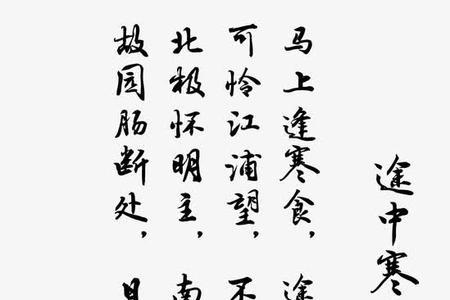 途中寒
马上逢寒食，途
可怜江浦望，不
北极怀明主，南
故园肠断处，日